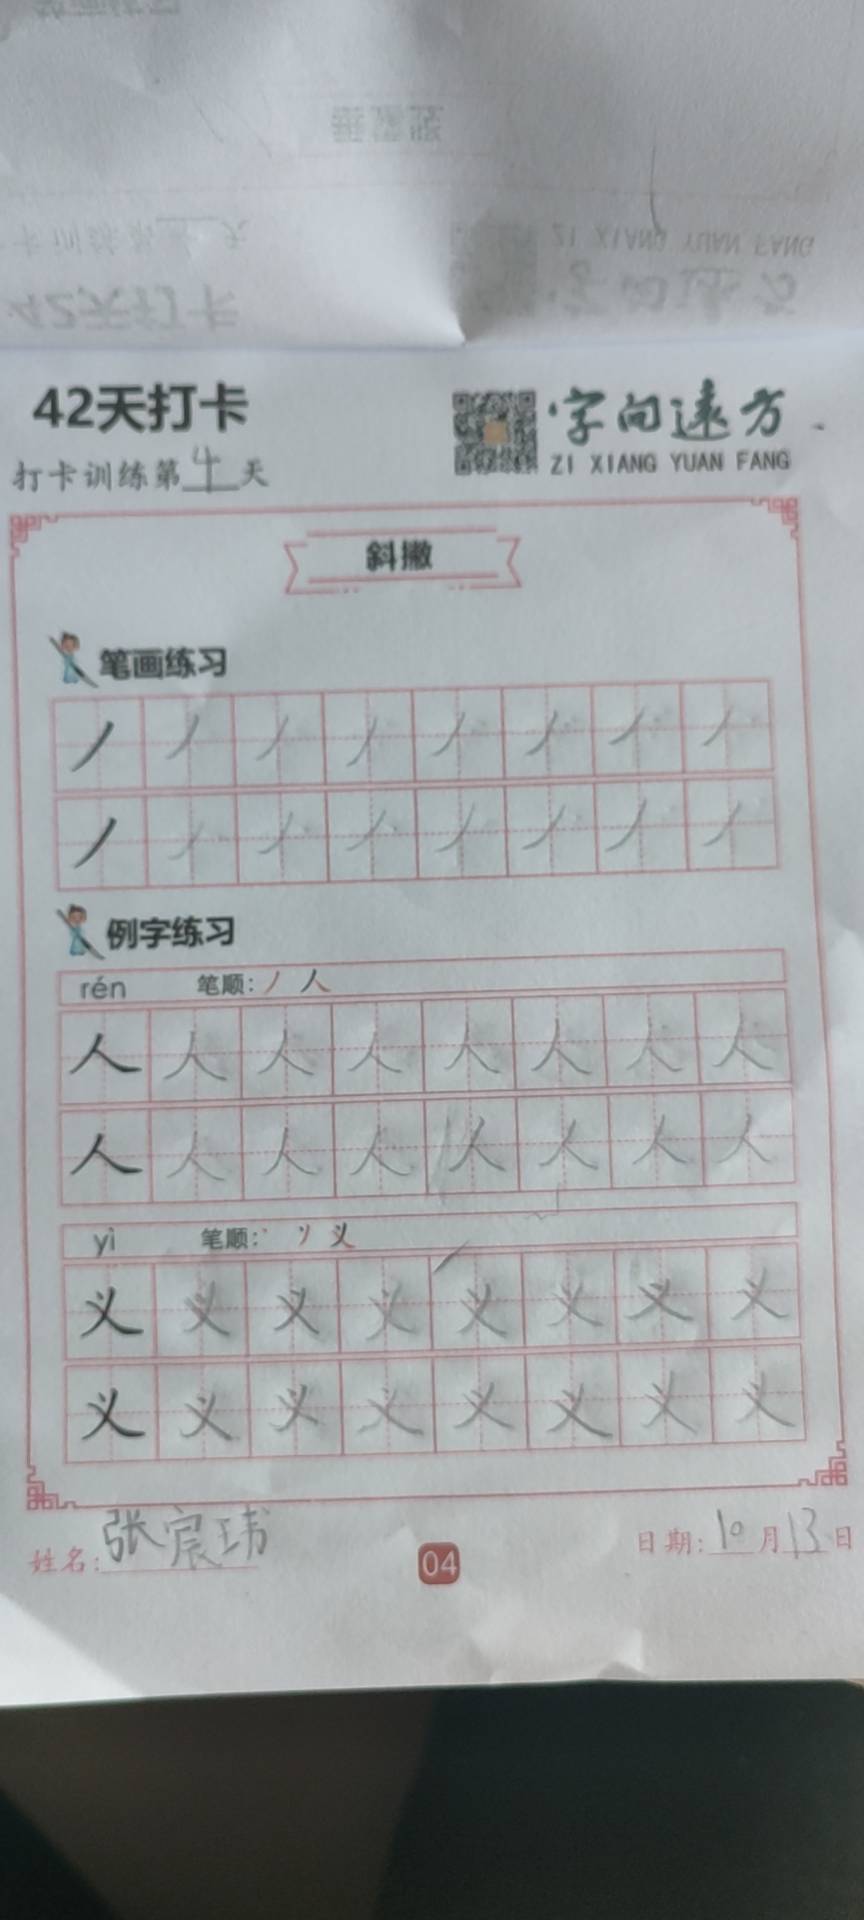 42天打卡
字向远方
ZI XIANG YUAN FANG
打卡训练第4天
斜撇
笔画练习
丿丿丿丿丿丿丿丿
丿丿丿丿丿丿丿丿
例字练习
rén 笔顺: 丿 人
人人人人人人人人
人人人人人人人人
yì 笔顺: 丶 丷 义
义义义义义义义义
义义义义义义义义
姓名: 张宸玮
04
日期: 10月13日